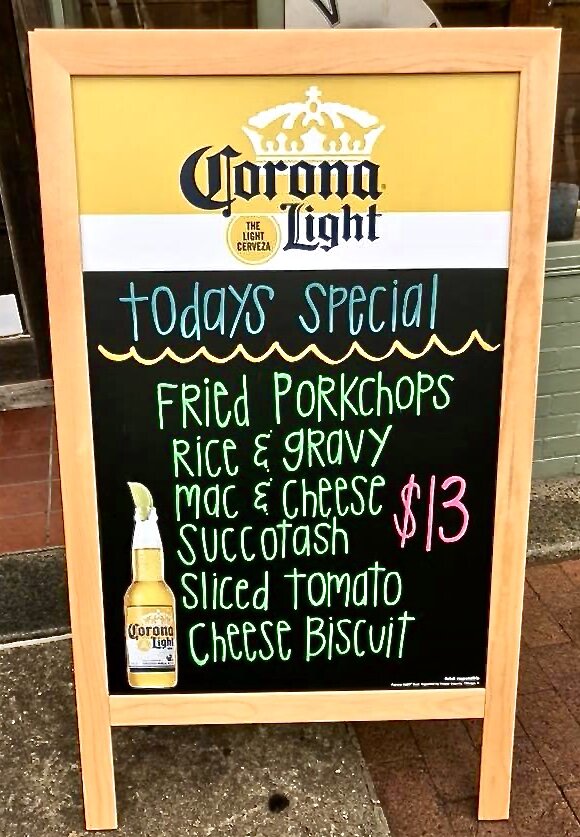 Corona
Light
THE
LIGHT
CERVEZA
todays special
FRied PORKchops
Rice & gRavy
mac & cheese
$13
Succotash
Sliced tomato
Cheese Biscuit
Corona
Light